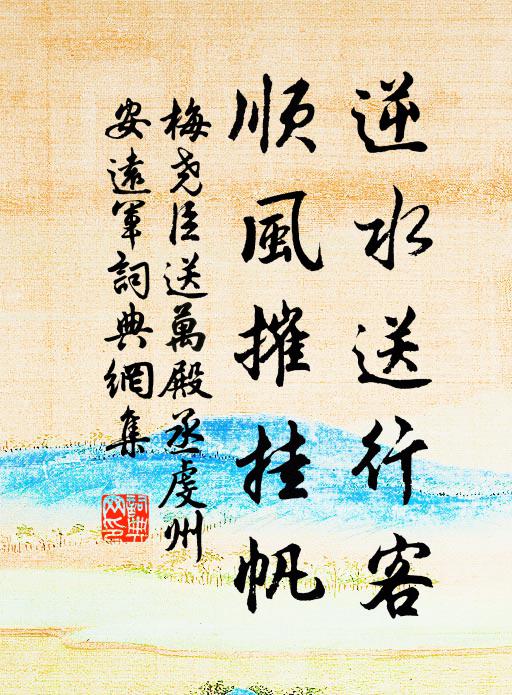 逆水送行客
順風摧挂帆
梅堯臣送萬殿丞虔州
安遠軍詞典網集